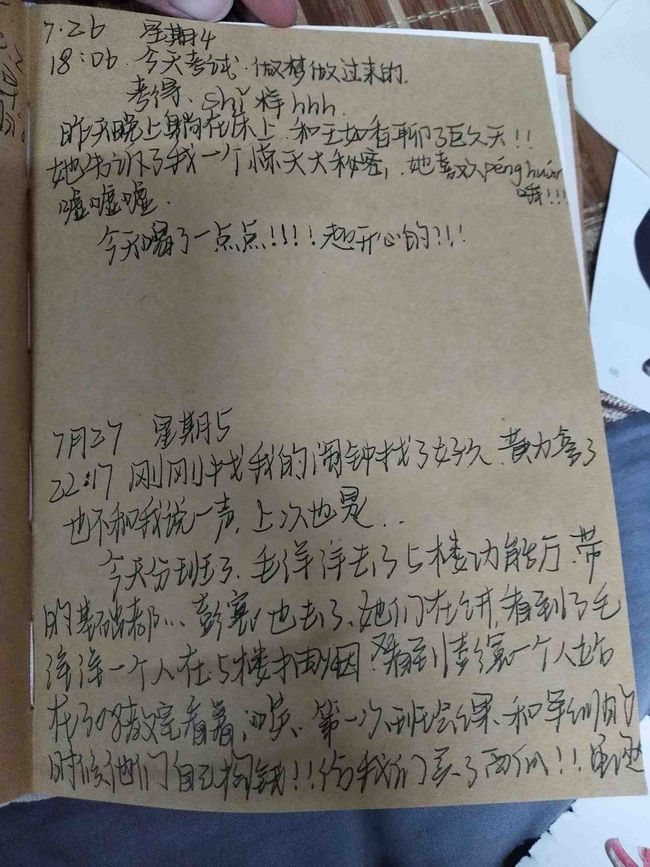 7.26 星期4
18:06 今天考试.做梦做过来的.
考得、shǐ样hhh.
昨天晚上躺在床上,和王如看聊了巨久天!!
她告诉了我一个惊天大秘密,她喜欢péng huān
哦!!!
嘘嘘嘘.
今天喝了一点点!!!!超开心的!!!
7月27 星期5
22:17 刚刚找我的闹钟找了好久、黄力拿了
也不和我说一声,上次也是...
今天分班了、毛洋洋去了5楼功能厅.带
的基础部...彭寰也去了、她们在讲,看到了毛
洋洋一个人在5楼抽烟 又看到彭寰一个人站
在308教室看着,唉、第一次班会课、和军训的
时候他们自己掏钱!!给我们买了西瓜!!